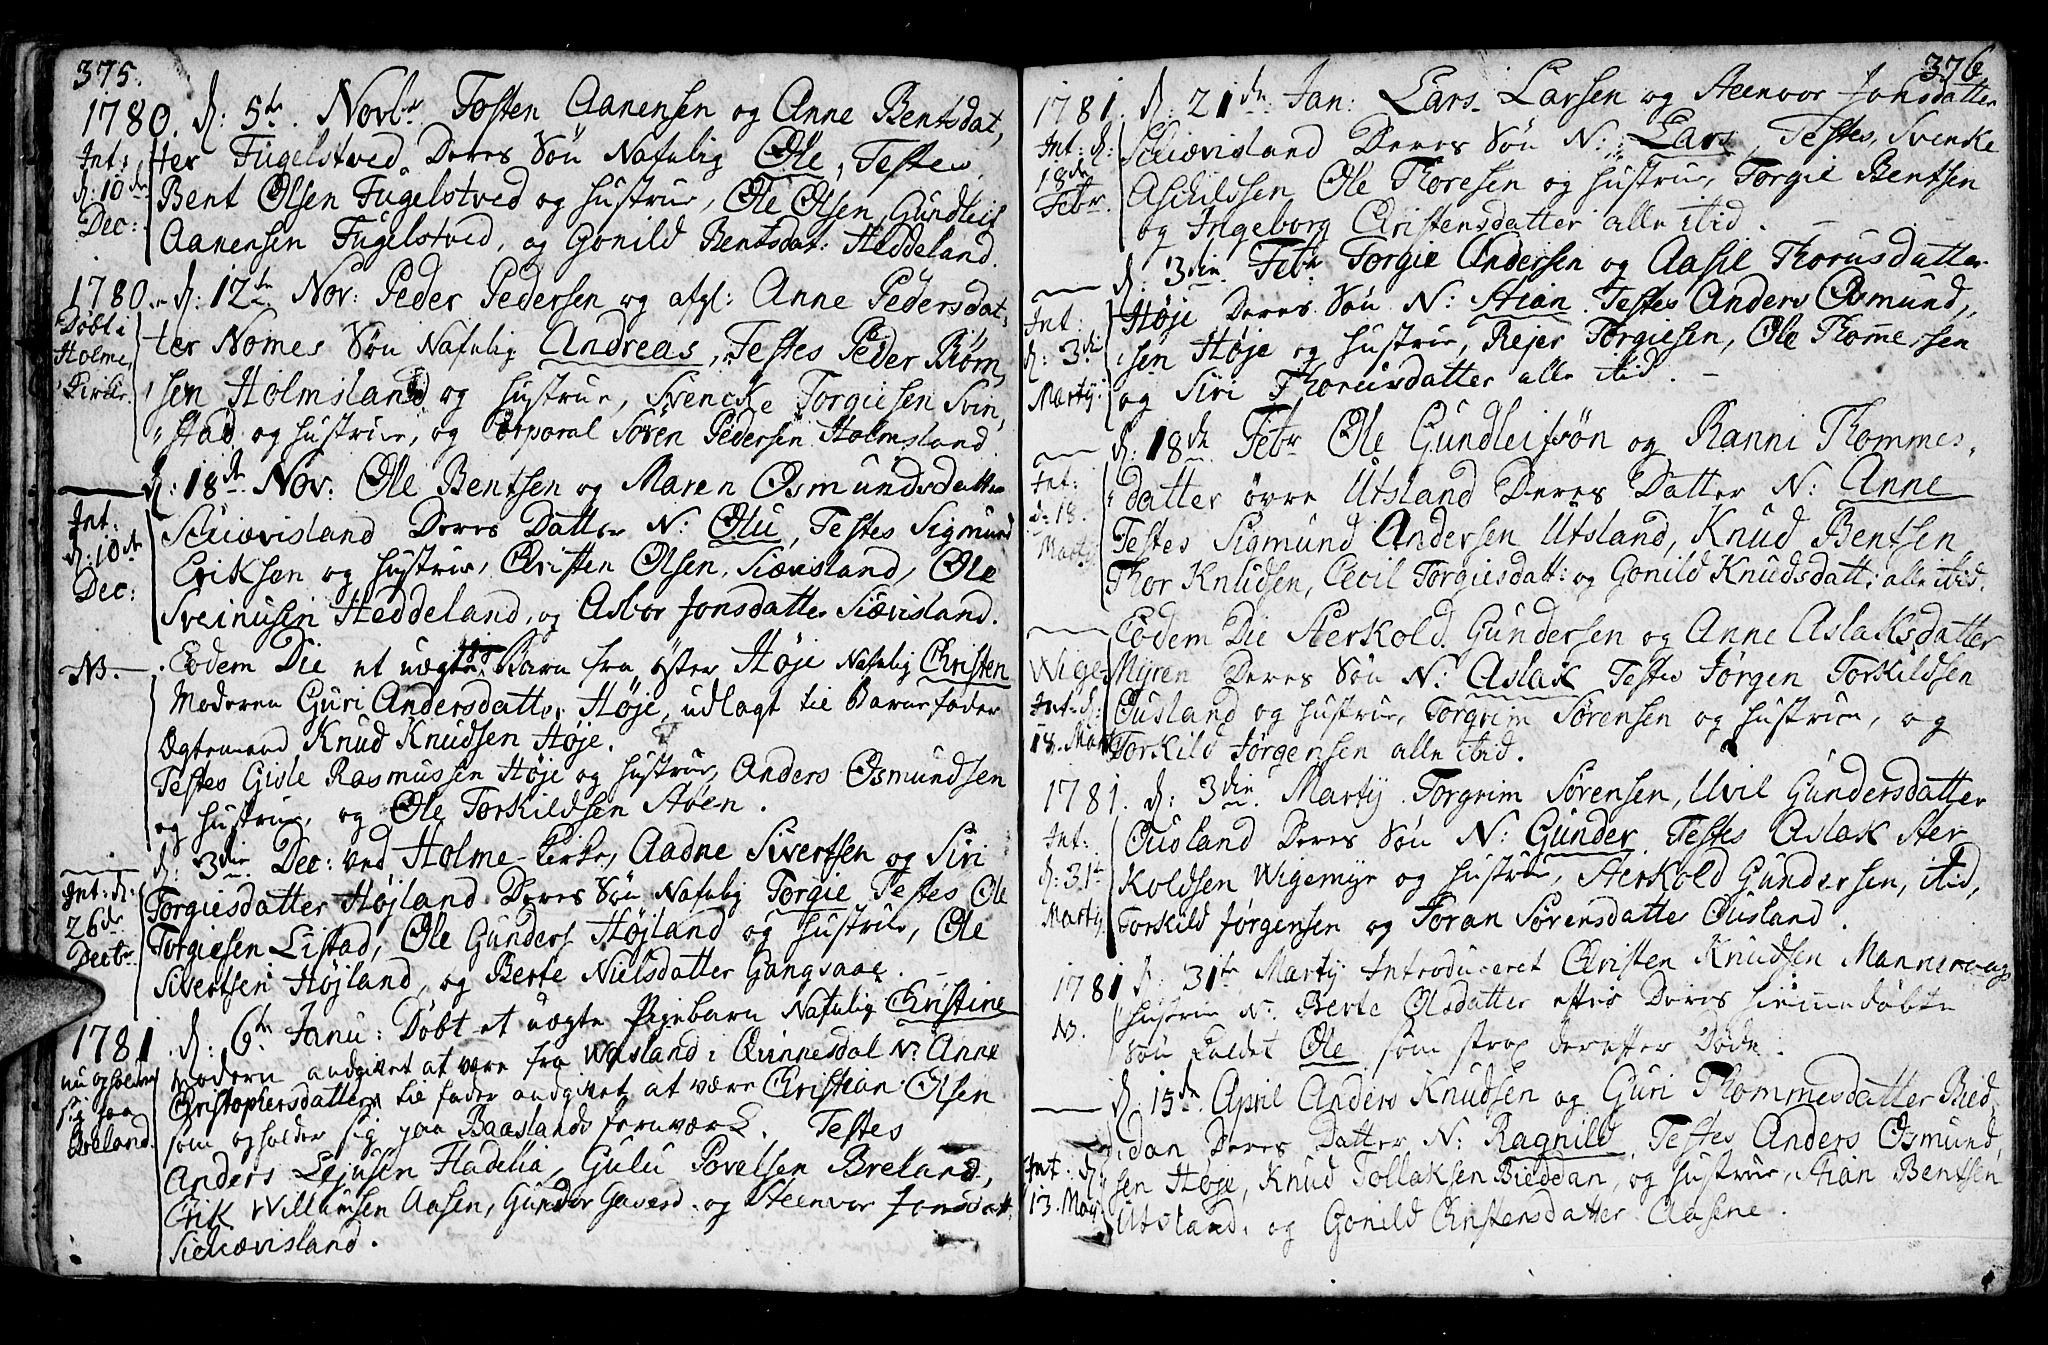 375.
1780. d: 5te. Novbr Tosten Aanensen og Anne Bentsdat,
Int: ter Fugelstved Deres Søn Nafnlig Ole, Testes
d: 10de Bent Olsen Fugelstved og hustrue, Ole Olsen, Gundleif
Dec: Aanensen Fugelstved, og Gonild Bentsdat: Heddeland.
1780. d: 12te Nov: Peder Pedersen og afgl: Anne Pedersdat,
Døbt i
Holme, ter Nomes Søn Nafnlig Andreas, Testes Peder Biørn,
Kirke. sen Holmsland og hustrue, Svencke Torgiesen Svin,
stad og hustrue, og Corporal Søren Pedersen Holmsland
d: 18de Nov: Ole Bentsen og Maren Osmundsdatter
Int: Sciævisland Deres Datter N: Olu, Testes Sigmund
d: 10de Eriksen og hustrue, Christen Olsen, Siævisland, Ole
Dec: Sveinusen Heddeland, og Asbor Jonsdatter Siævisland.
NB. Eodem Die et uægte Barn fra Øster Høje Nafnlig Christen
Moderen Guri Andersdatter Høje, udlagt til Barnefader
Ægtemand Knud Knudsen Høje.
Testes Gisle Rasmussen Høje og hustrue, Anders Osmundsen
og hustrue, og Ole Torkildsen Støen.
d: 3die Dec: ved Holme Kirke, Aadne Sivertsen og Siri
Int: d: Torgiesdatter Højland Deres Søn Nafnlig Torgie Testes Ole
26de Torgiesen Listad, Ole Gunders Højland og hustrue, Ole
Decbr. Sivertsen Højland, og Berte Nielsdatter Gangsaae.
1781 d: 6te Janu: Døbt et uægte Pigebarn Nafnlig Christine
nu opholder Modern andgivet at være fra Wasland i Qvinnesdal N: Anne
sig paa Christophersdatter, til fader andgivet at være Christian Olsen
Breland. som opholder sig paa Baaslands Jernværk. Testes
Anders Lejusen Hadelia, Gulu Povelsen Breland,
Erik Willumsen Aasen, Gunder Gaverd. og Steenvor Jonsdatt,
Siævisland.
376
1781. d: 21de Jan: Lars Larsen og Steenvor Jonsdatter
Int: d: Sciævisland Deres Søn N: Lars, Testes, Svenke
18de Aschildsen Ole Thoresen og hustrue, Torgie Bentsen
Febr. og Ingeborg Christensdatter alle ibid.
d: 3die Febr Torgie Andersen og Aasil Thorusdatter
Int: Høje Deres Søn N: Stian Testes Anders Osmund,
d: 3die sen Høje og hustrue, Rejer Torgiesen, Ole Thommersen
Martij og Siri Thorusdatter alle ibid.
d: 18de Febr Ole Gundleifsøn og Ranni Thommes,
Int: datter øvre Utsland Deres Datter N: Anne
d: 18. Testes Sigmund Andersen Utsland, Knud Bentsen
Martij Thor Knudsen, Cecil Torgiesdatt: og Gonild Knudsdatt: alle ibid.
Eodem Die Sterkold Gundersen og Anne Aslaksdatter
Wige, Myren Deres Søn N: Aslak Testes Jørgen Torkildsen
Int: d: Ousland og hustrue, Torgrim Sørensen og hustrue, og
18. Mart Torkild Jørgensen alle ibid.
1781. d: 3die Martij Torgrim Sørensen, Uvil Gundersdatter
Int: Ousland Deres Søn N: Gunder Testes Aslak Ster
d: 31te koldsen Wigemyr og hustrue, Sterkold Gundersen, ibid,
Martij Torkild Jørgensen og Joran Sørensdatter Ousland.
1781 d: 31te Martij Introduceret Christen Knudsen Mannevags
NB. hustrue N: Berte Olsdatter efter Deres hiemmedøbte
Søn kaldet Ole som strax derefter døde.
d: 15de April Anders Knudsen og Guri Thommesdatter Bied,
dan Deres Datter N: Ragnild, Testes Anders Osmund,
Int: d: sen Høje, Knud Tollaksen Bieddan, og hustrue, Stian Bentsen
13. Maij Utsland, og Gonild Christensdatter Aasene.